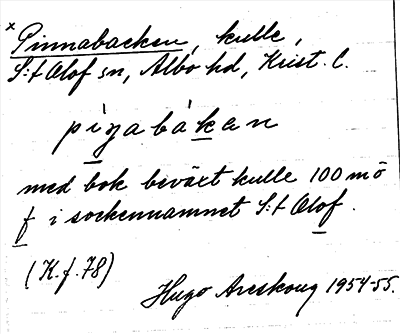 × Pinnabacken, kulle,
S:t Olof sn, Albo hd, Krist. l.
pigabákan
med bok beväxt kulle 100 m ö
f i sockennamnet S:t Olof.
(K.f.78)
Hugo Areskoug 1954-55.